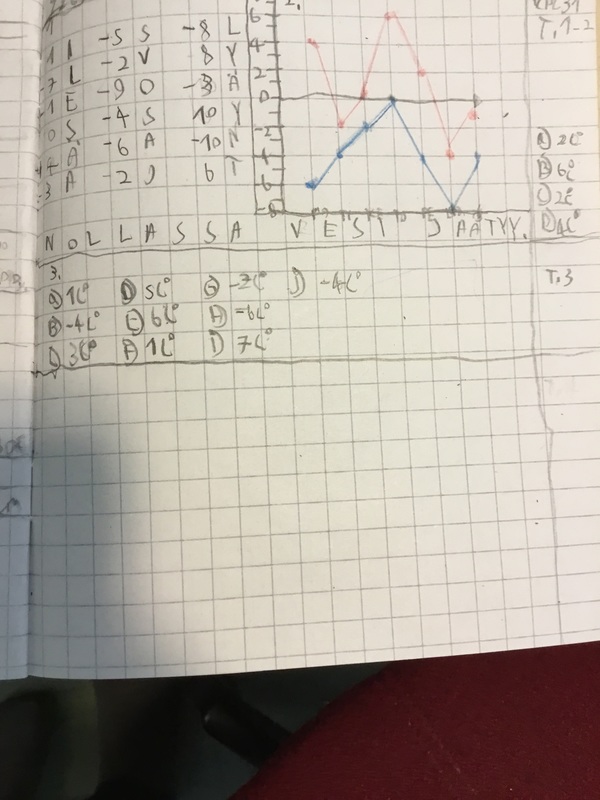 -5 S -8 L
L -2 V 8 Y
E -9 O -3 Ä
S -4 S 10 Y
Ä -6 A -10 N
-3 A -2 J 6 T
6
4
2
0
-2
-4
-6
-8
T, 1-2
A) 2C°
B) 6C°
C) 2C°
D) 4C°
N O L L A S S A V E S I J A A T Y Y.
3. T. 3
A) 1C° D) 5C° G) -2C° J) -4C°
B) -4C° E) 6C° H) -6C°
C) 3C° F) 1C° I) 7C°